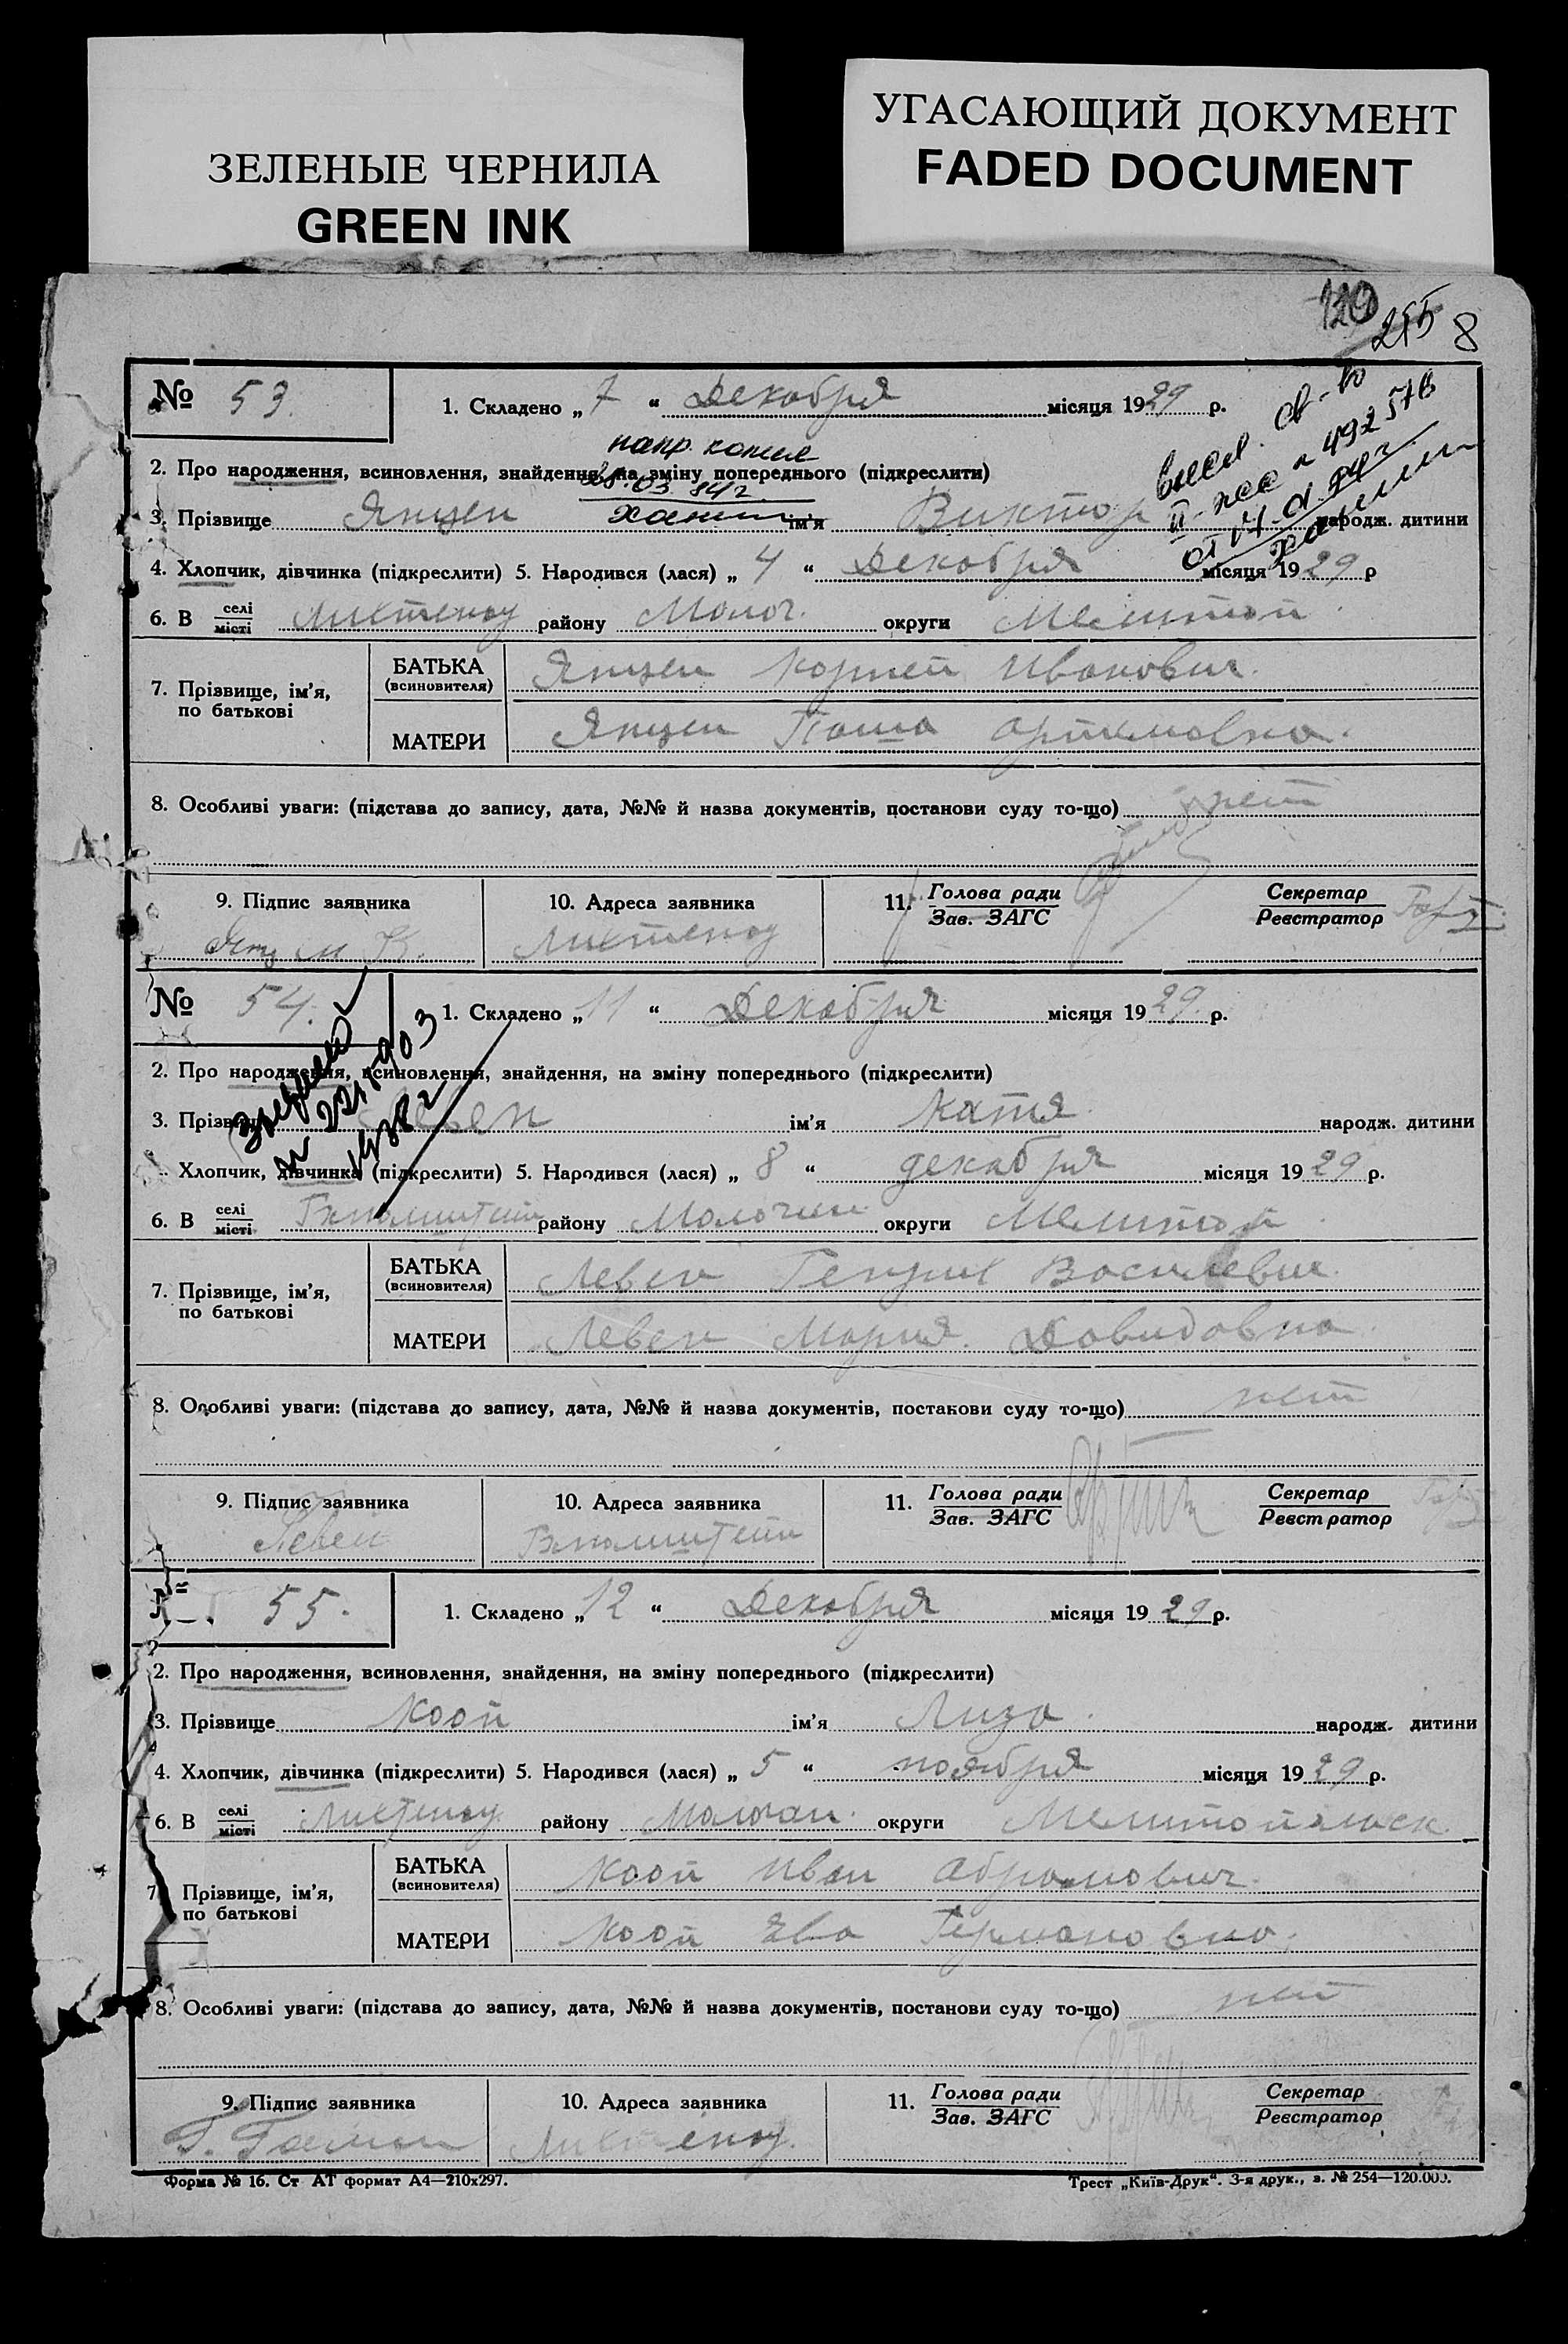 ЗЕЛЕНЫЕ ЧЕРНИЛА
GREEN INK
УГАСАЮЩИЙ ДОКУМЕНТ
FADED DOCUMENT
120
255 8
№ 53. 1. Складено „ 7 “ Декабря місяця 1929 р.
напр. копия
2. Про народження, всиновлення, знайдення, на зміну попереднього (підкреслити)
3. Прізвище Янцен ім'я Виктор народж. дитини
4. Хлопчик, дівчинка (підкреслити) 5. Народився (лася) „ 4 “ Декабря місяця 1929 р
6. В селі місті Лихтенау району Молоч. округи Мелитоп.
7. Прізвище, ім'я, по батькові
БАТЬКА (всиновителя) Янцен Корней Иванович.
МАТЕРИ Янцен Паша Артемовна.
8. Особливі уваги: (підстава до запису, дата, №№ й назва документів, постанови суду то-що) нет
9. Підпис заявника 10. Адреса заявника 11. Голова ради Зав. ЗАГС Секретар Реєстратор
Янцен К. Лихтенау
№ 54. 1. Складено „ 11 “ Декабря місяця 1929. р.
2. Про народження, всиновлення, знайдення, на зміну попереднього (підкреслити)
3. Прізвище Левен ім'я Катя народж. дитини
Хлопчик, дівчинка (підкреслити) 5. Народився (лася) „ 8 “ декабря місяця 1929 р.
6. В селі місті району Молочан. округи Мелитоп.
7. Прізвище, ім'я, по батькові
БАТЬКА (всиновителя) Левен Генрих Васильевич.
МАТЕРИ Левен Мария Давидовна
8. Особливі уваги: (підстава до запису, дата, №№ й назва документів, постанови суду то-що) нет
9. Підпис заявника 10. Адреса заявника 11. Голова ради Зав. ЗАГС Секретар Реєстратор
Левен
55. 1. Складено „ 12 “ Декабря місяця 1929 р.
2. Про народження, всиновлення, знайдення, на зміну попереднього (підкреслити)
3. Прізвище Кооп ім'я Лиза народж. дитини
4. Хлопчик, дівчинка (підкреслити) 5. Народився (лася) „ 5 “ ноября місяця 1929 р.
6. В селі місті Лихтенау району Молочан. округи Мелитопольск.
7. Прізвище, ім'я, по батькові
БАТЬКА (всиновителя) Кооп Иван Абрамович.
МАТЕРИ Кооп Ева Германовна.
8. Особливі уваги: (підстава до запису, дата, №№ й назва документів, постанови суду то-що) нет
9. Підпис заявника 10. Адреса заявника 11. Голова ради Зав. ЗАГС Секретар Реєстратор
Лихтенау.
Форма № 16. Ст АТ формат А4—210х297.
Трест „Київ-Друк“. 3-я друк., з. № 254—120.000.